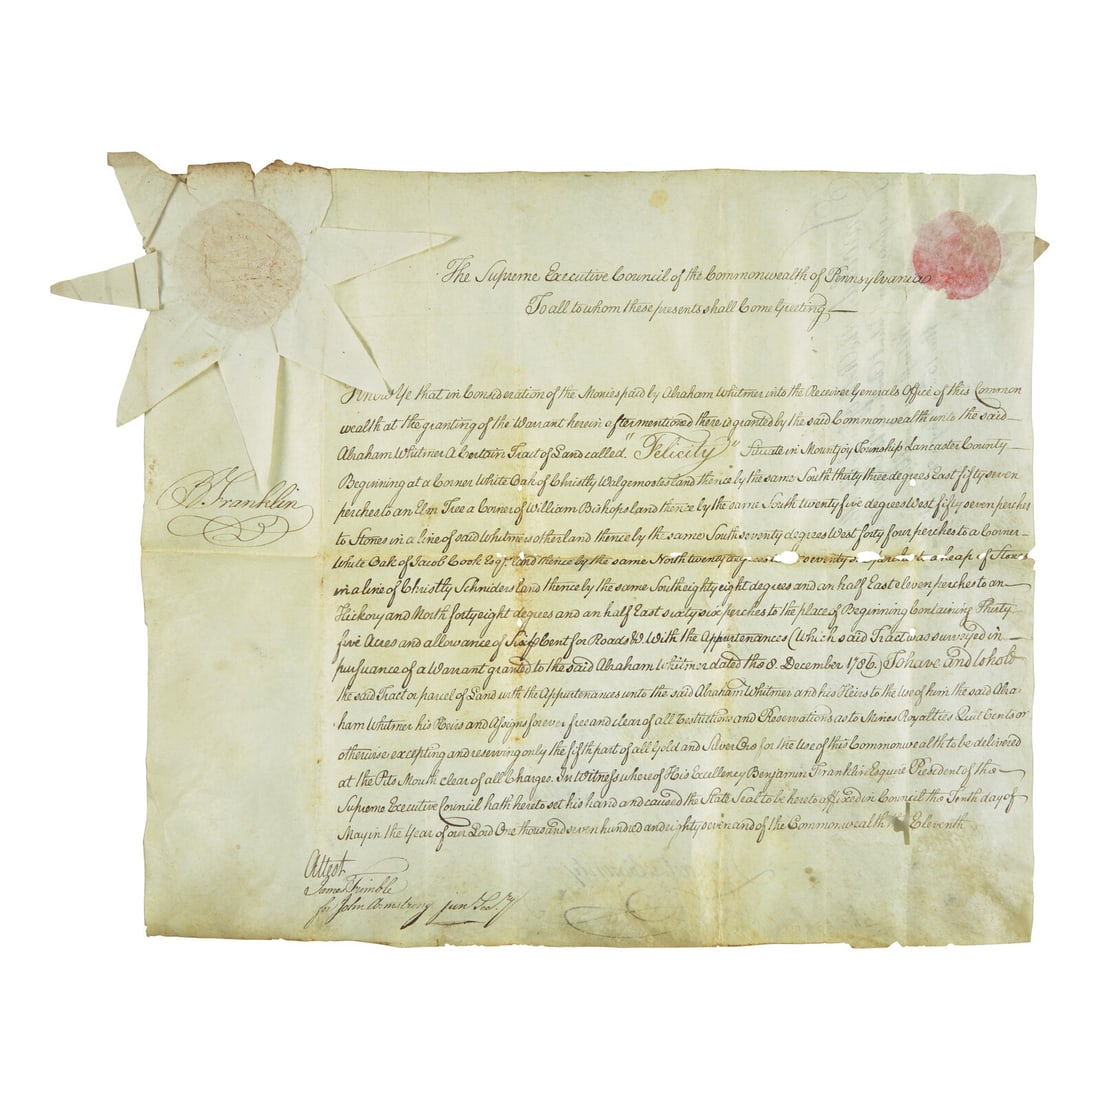 The Supreme Executive Council of the Commonwealth of Pennsylvania
To all to whom these presents shall Come Greeting
Know Ye that in Consideration of the Monies paid by Abraham Whitmer into the Receiver Generals Office of this Common
wealth at the granting of the Warrant herein after mentioned there is granted by the said Commonwealth unto the said
Abraham Whitmer A Certain Tract of Land called "Felicity" Situate in Mountjoy Township Lancaster County
Beginning at a Corner White Oak of Christly Walgemosts land thence by the same South thirty three degrees East fifty seven
perches to an Elm Tree a Corner of William Bishops land thence by the same South twenty five degrees West fifty seven perches
to Stones in a line of said Whitmers other land thence by the same South seventy degrees West forty four perches to a Corner
White Oak of Jacob Cook Esqr. land thence by the same North twenty degrees seventy a heap of Stones
in a line of Christly Schniders land thence by the same South eighty eight degrees and an half East eleven perches to an
Hickory and North forty eight degrees and an half East sixty six perches to the place of Beginning Containing Thirty
five Acres and allowance of Six P Cent for Roads &c With the Appurtenances (Which said Tract was surveyed in
pursuance of a Warrant granted to the said Abraham Whitmer dated the 8. December 1786.) To have and to hold
the said Tract or parcel of Land with the Appurtenances unto the said Abraham Whitmer and his Heirs to the Use of him the said Abra
ham Whitmer his Heirs and Assigns forever free and clear of all Restrictions and Reservations as to Mines Royalties Quit Rents or
otherwise excepting and reserving only the fifth part of all Gold and Silver Ore for the Use of this Commonwealth to be delivered
at the Pits Mouth clear of all Charges. In Witness where of His Excellency Benjamin Franklin Esquire President of the
Supreme Executive Council hath hereto set his hand and caused the State Seal to be hereto affixed in Council the Tenth day of
May in the Year of our Lord One thousand seven hundred and eighty seven and of the Commonwealth Eleventh
B Franklin
Attest
James Trimble
for John Armstrong jun Sec.y